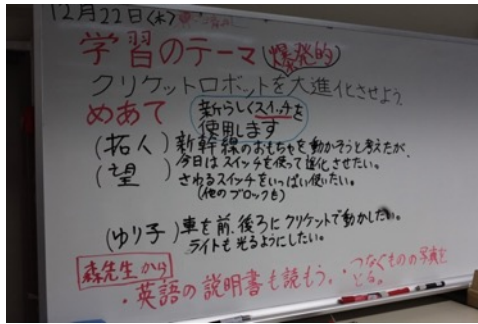 12月22日(木)
学習のテーマ(爆発的)
クリケットロボットを大進化させよう。
めあて 新らしくスイッチを
使用します
(拓人)新幹線のおもちゃを動かそうと考えたが、
今日はスイッチを使って進化させたい。
(望)されるスイッチをいっぱい使いたい。
(他のブロックも)
(ゆり子)車を前、後ろにクリケットで動かしたい。
ライトも光るようにしたい。
森先生から
・英語の説明書も読もう。・つなぐものの写真を
とる。